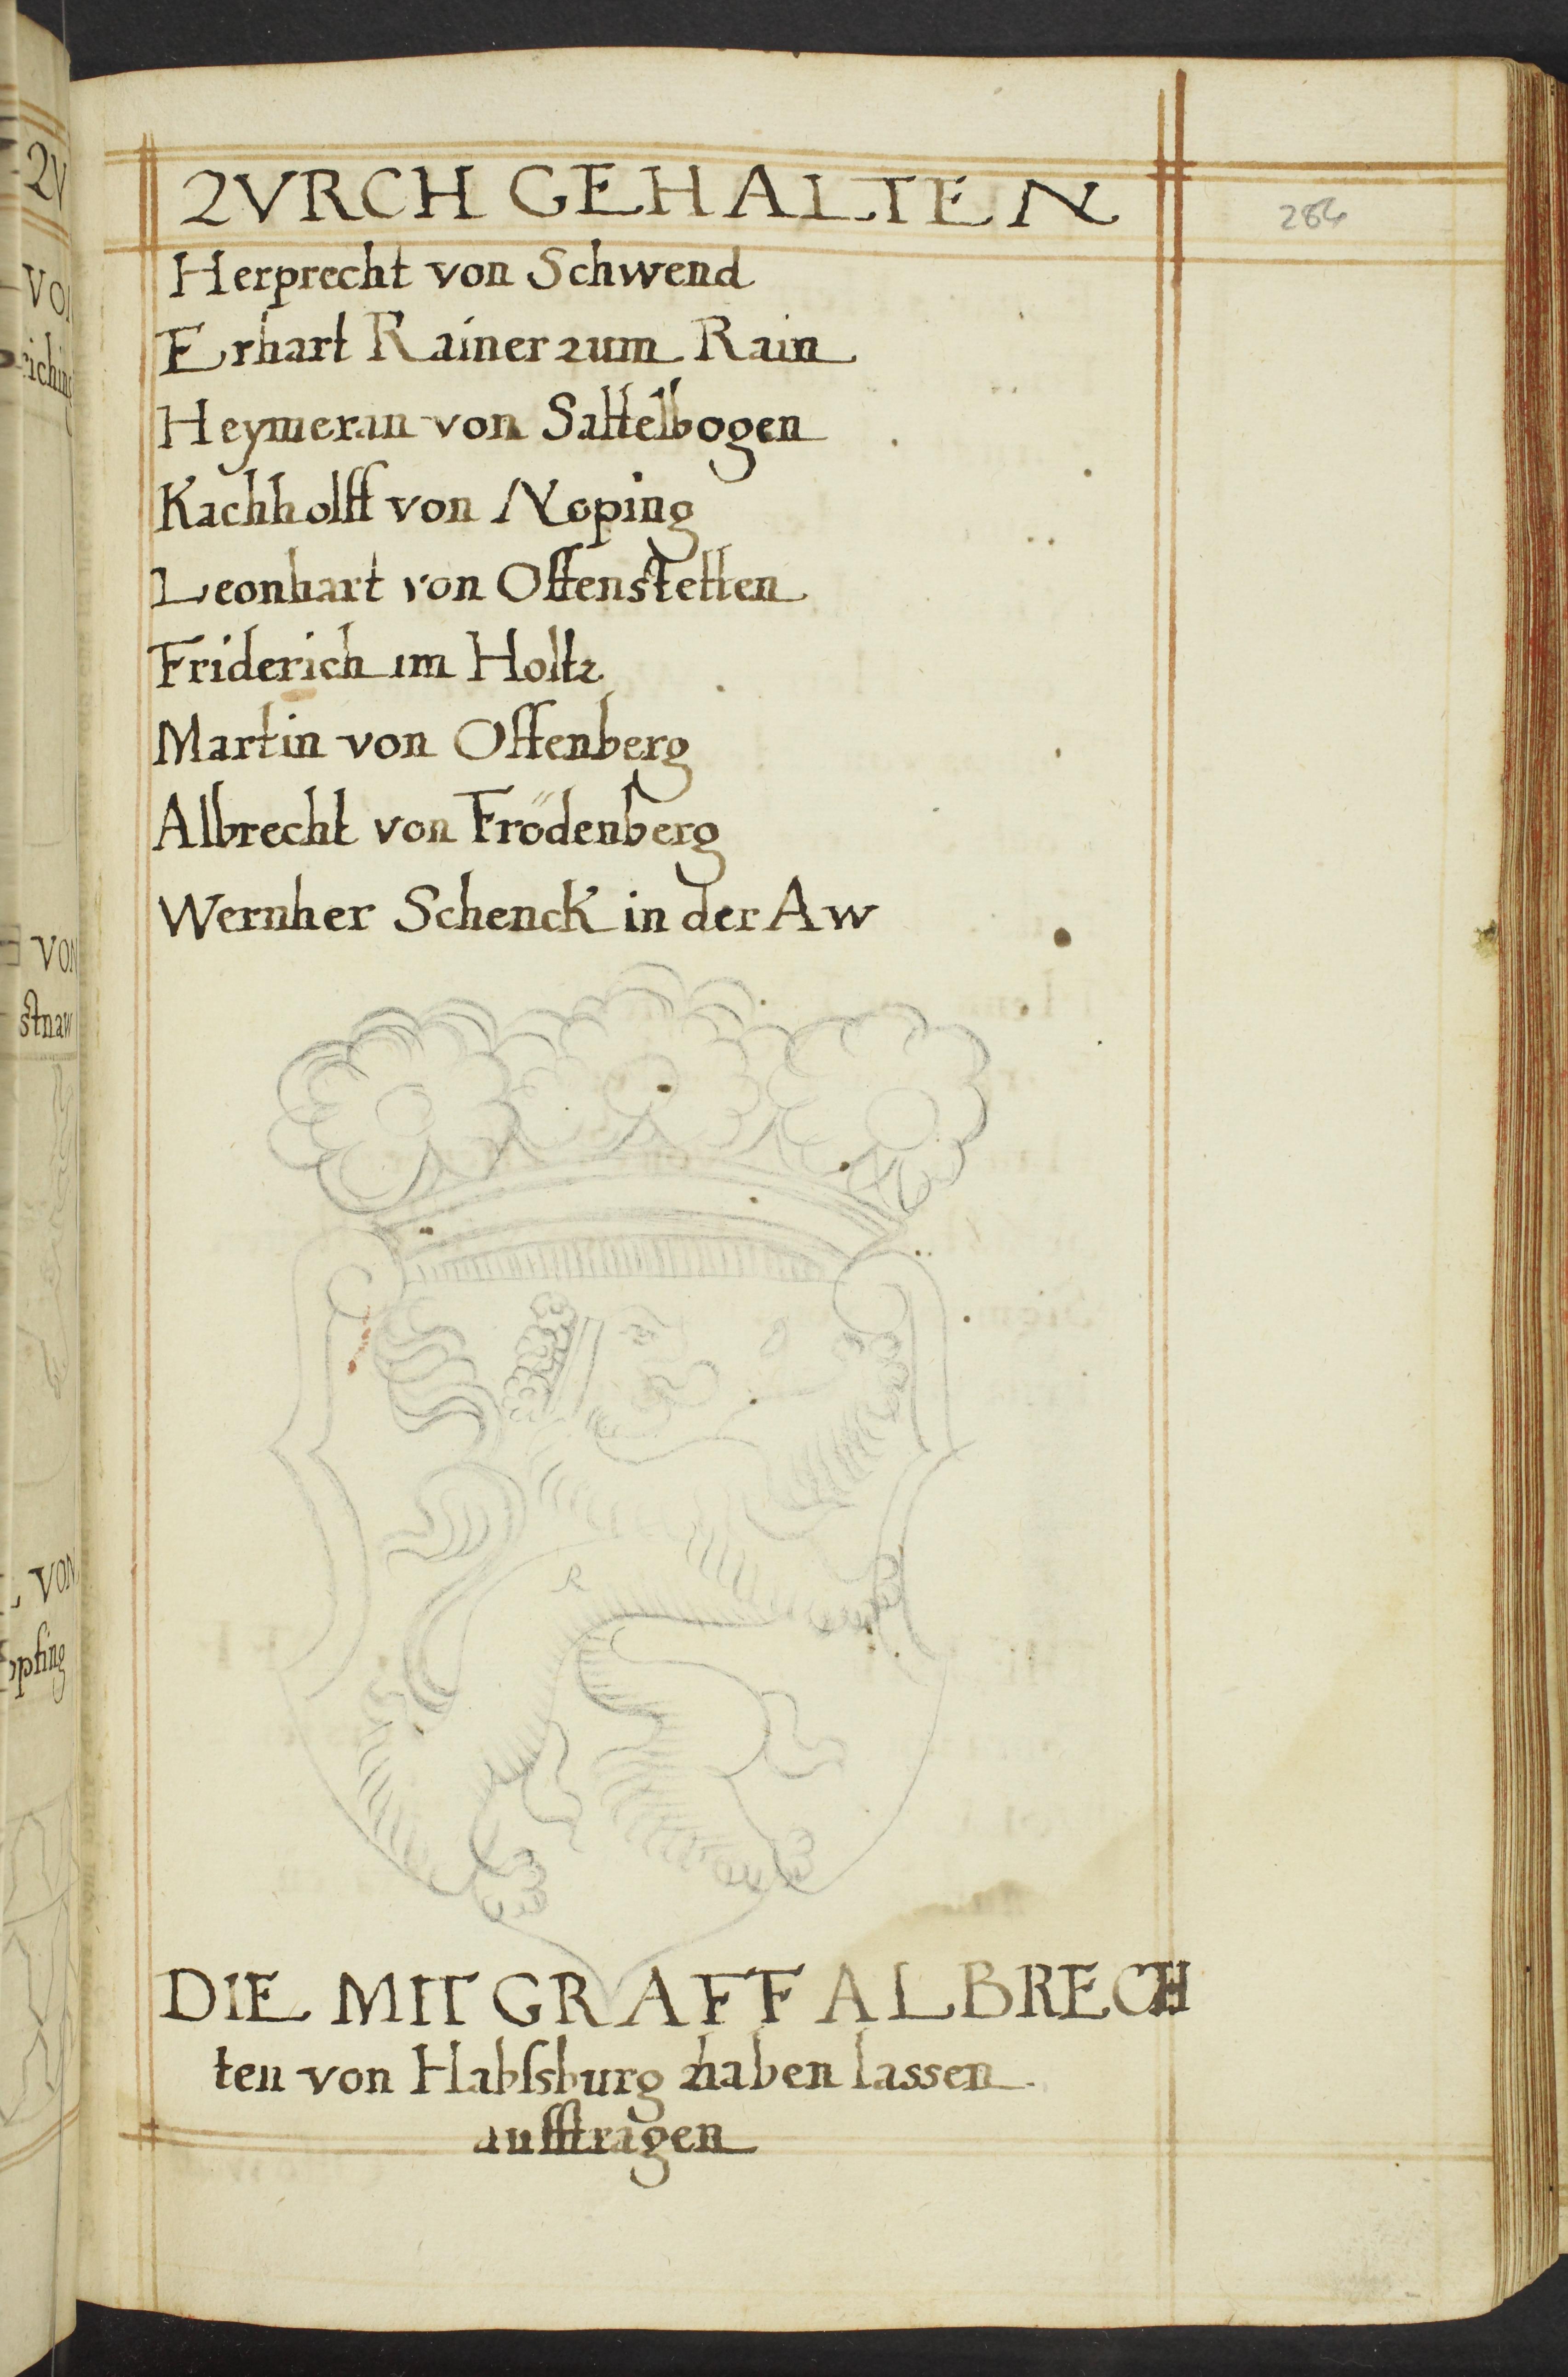 ZVRCH GEHALTEN
284
Herprecht von Schwend
Erhart Rainer zum Rain
Heymeran von Sattelbogen
Kachholff von Noping
Leonhart von Offenstetten
Friderich im Holtz
Martin von Offenberg
Albrecht von Frödenberg
Wernher Schenck in der Aw
R
DIE MIT GRAFF ALBRECH
ten von Habſsburg zhaben lassen
aufftragen